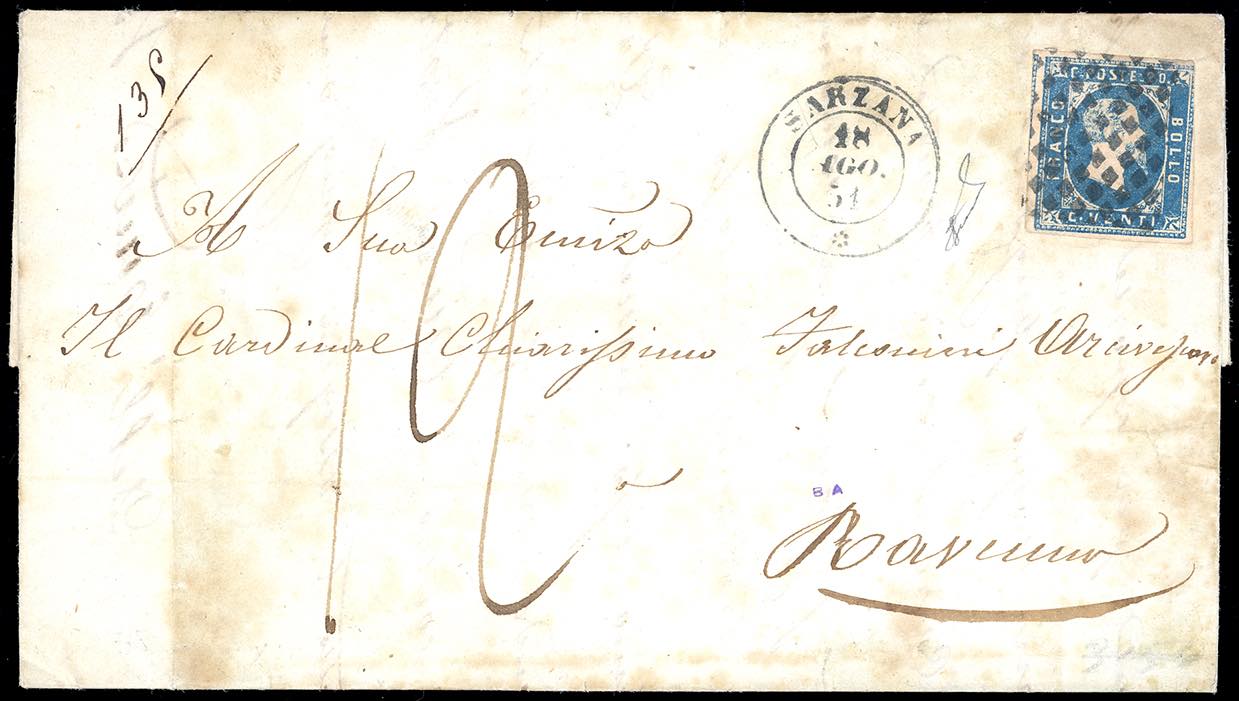 135
SARZANA
18
AGO.
51
C. POSTE 20.
FRANCO
BOLLO
C. VENTI
A Sua Eminza
Il Cardinal Chiarissimo Falconieri Arcivescovo
12
BA
a
Ravenna